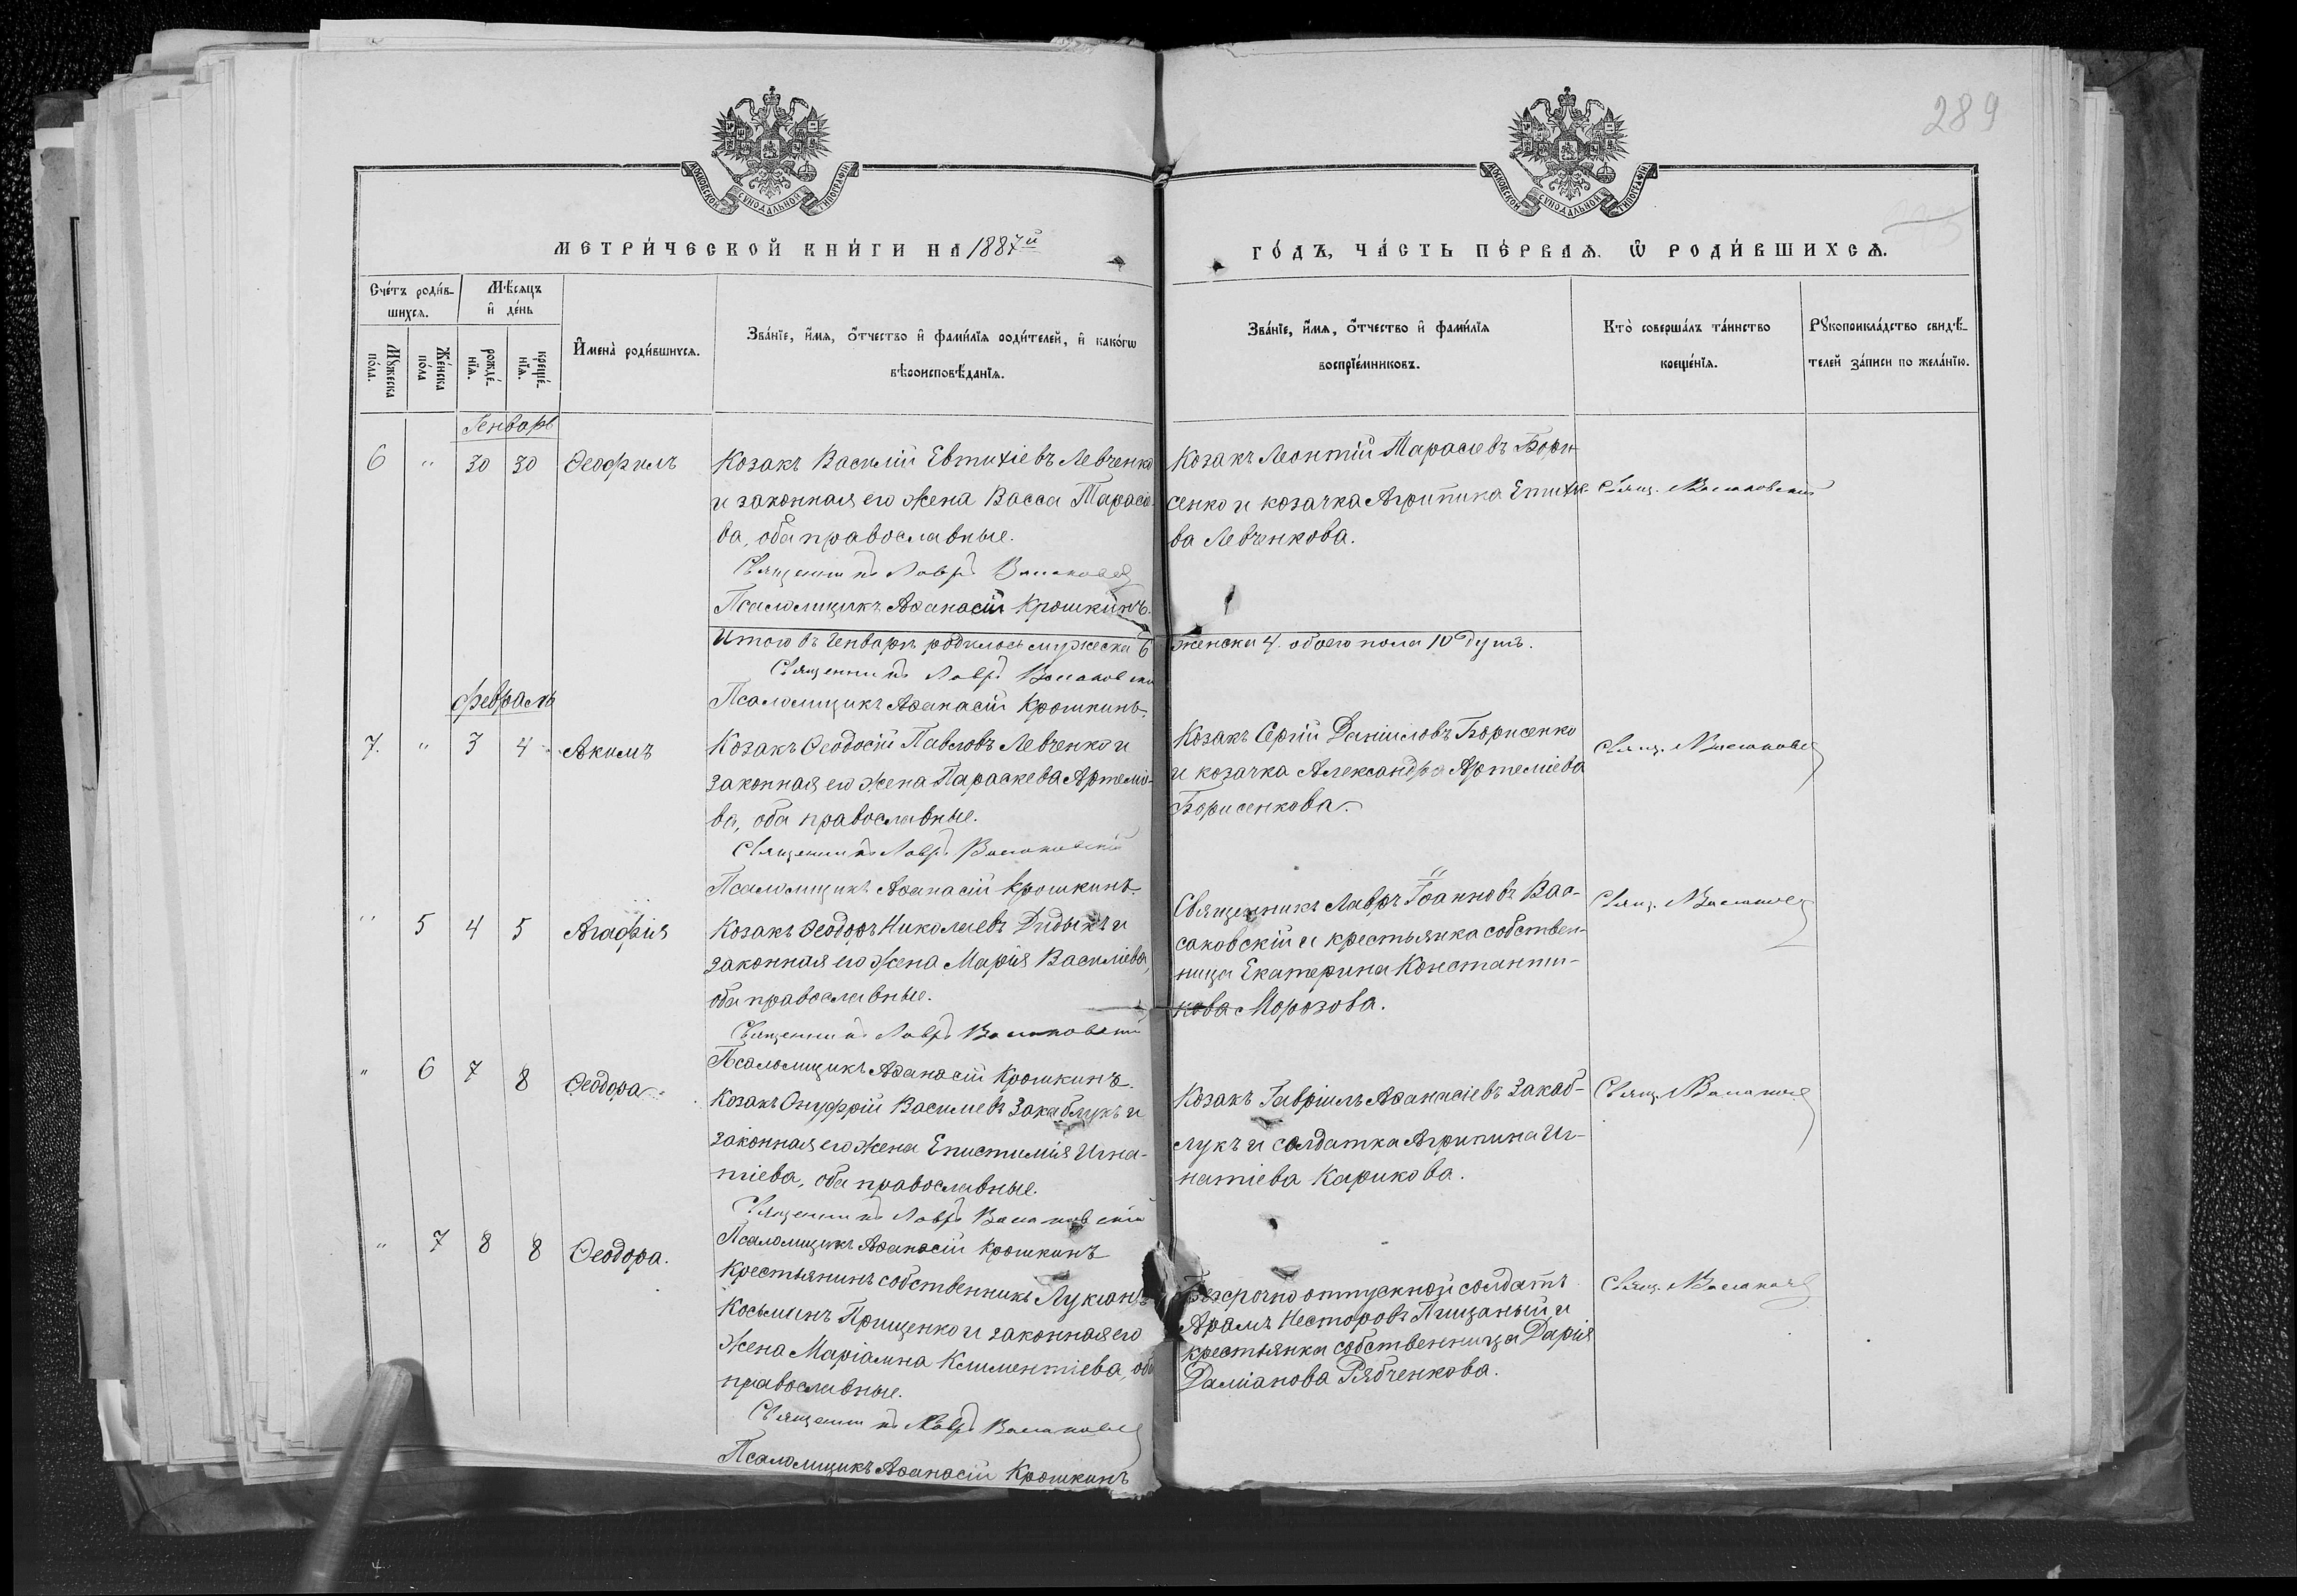 289
МОСКОВСКОЙ СѴНОДАЛЬНОЙ ТИПОГРАФІИ
МОСКОВСКОЙ СѴНОДАЛЬНОЙ ТИПОГРАФІИ
МЕТРИ́ЧЕСКОЙ КНИ́ГИ НА 1887й
ГО́ДЪ, ЧА́СТЬ ПЕ́РВАѦ. Ѡ҆ РОДИ́ВШИХСѦ.
Сче́тъ роди́в-
шихсѧ.
Мѣ́сѧцъ
и҆ де́нь
Мꙋ́жеска
по́ла.
Же́нска
по́ла
рожде́-
нїѧ.
креще́-
нїѧ.
И҆мена̀ роди́вшихсѧ.
Зва́нїе, и҆́мѧ, ѻ҆́тчество и҆ фами́лїѧ роди́телей, и҆ како́гѡ
вѣроисповѣ́данїѧ.
Зва́нїе, и҆́мѧ, ѻ҆́тчество и҆ фами́лїѧ
воспрїе́мниковъ.
Кто̀ соверша́лъ та́инство
креще́нїѧ.
Рꙋкоприкла́дство свидѣ́-
телей за́писи по жела́нїю.
Генварь
6 " 30 30 Ѳеофилъ
Козакъ Василій Евтихіевъ Левченко
и законная его жена Васса Тарасіе-
ва, оба православные.
Священникъ Лавръ Вассаковск
Псаломщикъ Аѳанасій Крошкинъ.
Козакъ Леонтій Тарасіевъ Бори-
сенко и козачка Агрипина Евтихіе-
ва Левченкова.
Свящ. Вассаковскій
Итого въ Генварѣ родилось мужеска 6 женска 4. обоего пола 10 душъ.
Священникъ Лавръ Вассаковскій
Псаломщикъ Аѳанасій Крошкинъ.
Февраль
7. " 3 4 Акимъ
Козакъ Ѳеодосій Павловъ Левченко и
законная его жена Параскева Артеміе-
ва, оба православные.
Священникъ Лавръ Вассаковскій
Псаломщикъ Аѳанасій Крошкинъ.
Козакъ Сергій Даніиловъ Борисенко
и козачка Александра Артеміева
Борисенкова.
Свящ. Л Вассаковск
" 5 4 5 Агафія
Козакъ Ѳеодоръ Николаевъ Дидыкъ и
законная его жена Марія Василіева,
оба православные.
Священникъ Лавръ Вассаковскій
Псаломщикъ Аѳанасій Крошкинъ.
Священникъ Лавръ Іоанновъ Вас-
саковскій и крестьянка собствен-
ница Екатерина Константи-
нова Морозова.
Свящ. Л Вассаковск
" 6 7 8 Ѳеодора.
Козакъ Онуфрій Василіевъ Закаблукъ и
законная его жена Епистимія Игна-
тіева, оба православные.
Священникъ Лавръ Вассаковскій
Псаломщикъ Аѳанасій Крошкинъ
Козакъ Гавріилъ Аѳанасіевъ Закаб-
лукъ и солдатка Агрипина Иг-
натіева Карикова.
Свящ. Л Вассаковск
" 7 8 8 Ѳеодора.
Крестьянинъ собственникъ Лукіанъ
Косьминъ Прищенко и законная его
жена Маріамна Климентіева, оба
православные.
Священникъ Лавръ Вассаковск
Псаломщикъ Аѳанасій Крошкинъ
Безсрочно отпускной солдатъ
Авраамъ Несторовъ Пищаный и
крестьянка собственница Дарія
Даміанова Рябченкова.
Свящ. Л Вассаковск